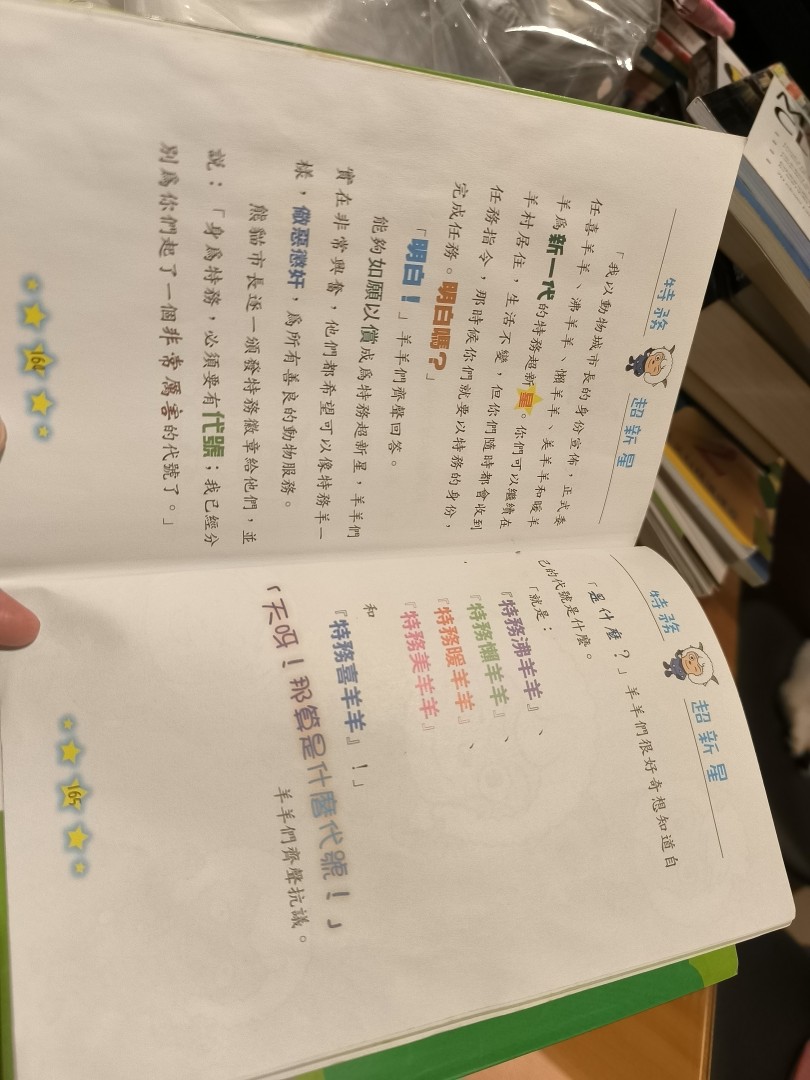 特務 超新星
「我以動物城市長的身份宣佈，正式委
任喜羊羊、沸羊羊、懶羊羊、美羊羊和暖羊
羊為新一代的特務超新星。你們可以繼續在
羊村居住，生活不變，但你們隨時都會收到
任務指令，那時候你們就要以特務的身份，
完成任務。明白嗎？」
「明白！」羊羊們齊聲回答。
能夠如願以償成為特務超新星，羊羊們
實在非常興奮，他們都希望可以像特務羊一
樣，儆惡懲奸，為所有善良的動物服務。
熊貓市長逐一頒發特務徽章給他們，並
說：「身為特務，必須要有代號；我已經分
別為你們起了一個非常厲害的代號了。」
164
特務 超新星
「是什麼？」羊羊們很好奇想知道自
己的代號是什麼。
「就是：
『特務沸羊羊』、
『特務懶羊羊』、
『特務暖羊羊』、
『特務美羊羊』
和
『特務喜羊羊』！」
「天呀！那算是什麼代號！」
羊羊們齊聲抗議。
165